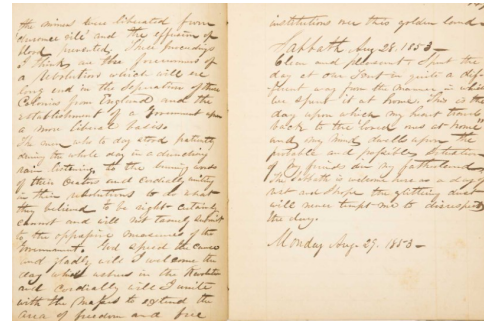 the mines were liberated from
"durance vile" and the effusion of
blood prevented. These proceedings
I think are the forerunners of
a Revolution which will ere
long end in the Separation of these
Colonies from England and the
establishment of a Government upon
a more liberal basis.
The men who to day stood patiently
during the whole day in a drenching
rain listening to the burning words
of their Orators and cordially uniting
in their resolutions to do what
they believed to be right certainly
cannot and will not tamely submit
to the oppressive measures of the
Government. God speed the cause
and gladly will I welcome the
day which ushers in the Revolution
and cordially will I unite
with the masses to extend the
area of freedom and free
institutions over this golden land—
Sabbath Aug 28. 1853—
Clear and pleasant. Spent the
day at our Tent in quite a dif-
ferent way from the manner in which
we spent it at home. This is the
day upon which my heart travels
back to the loved ones at "home"
and my mind dwells upon the
probable and possible situation
of my friends in my fatherland.
The Sabbath is welcome here as a day of
rest and I hope the glittering dust
will never tempt me to disrespect
the day.
Monday Aug. 29. 1853—